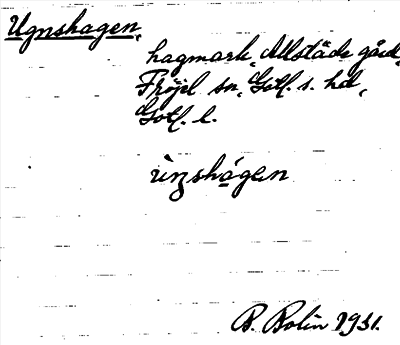 Ugnshagen,
hagmark, Allstäde gård,
Fröjel sn, Gotl. s. hd,
Gotl. l.
ùŋshágen
B. Bolin 1931.